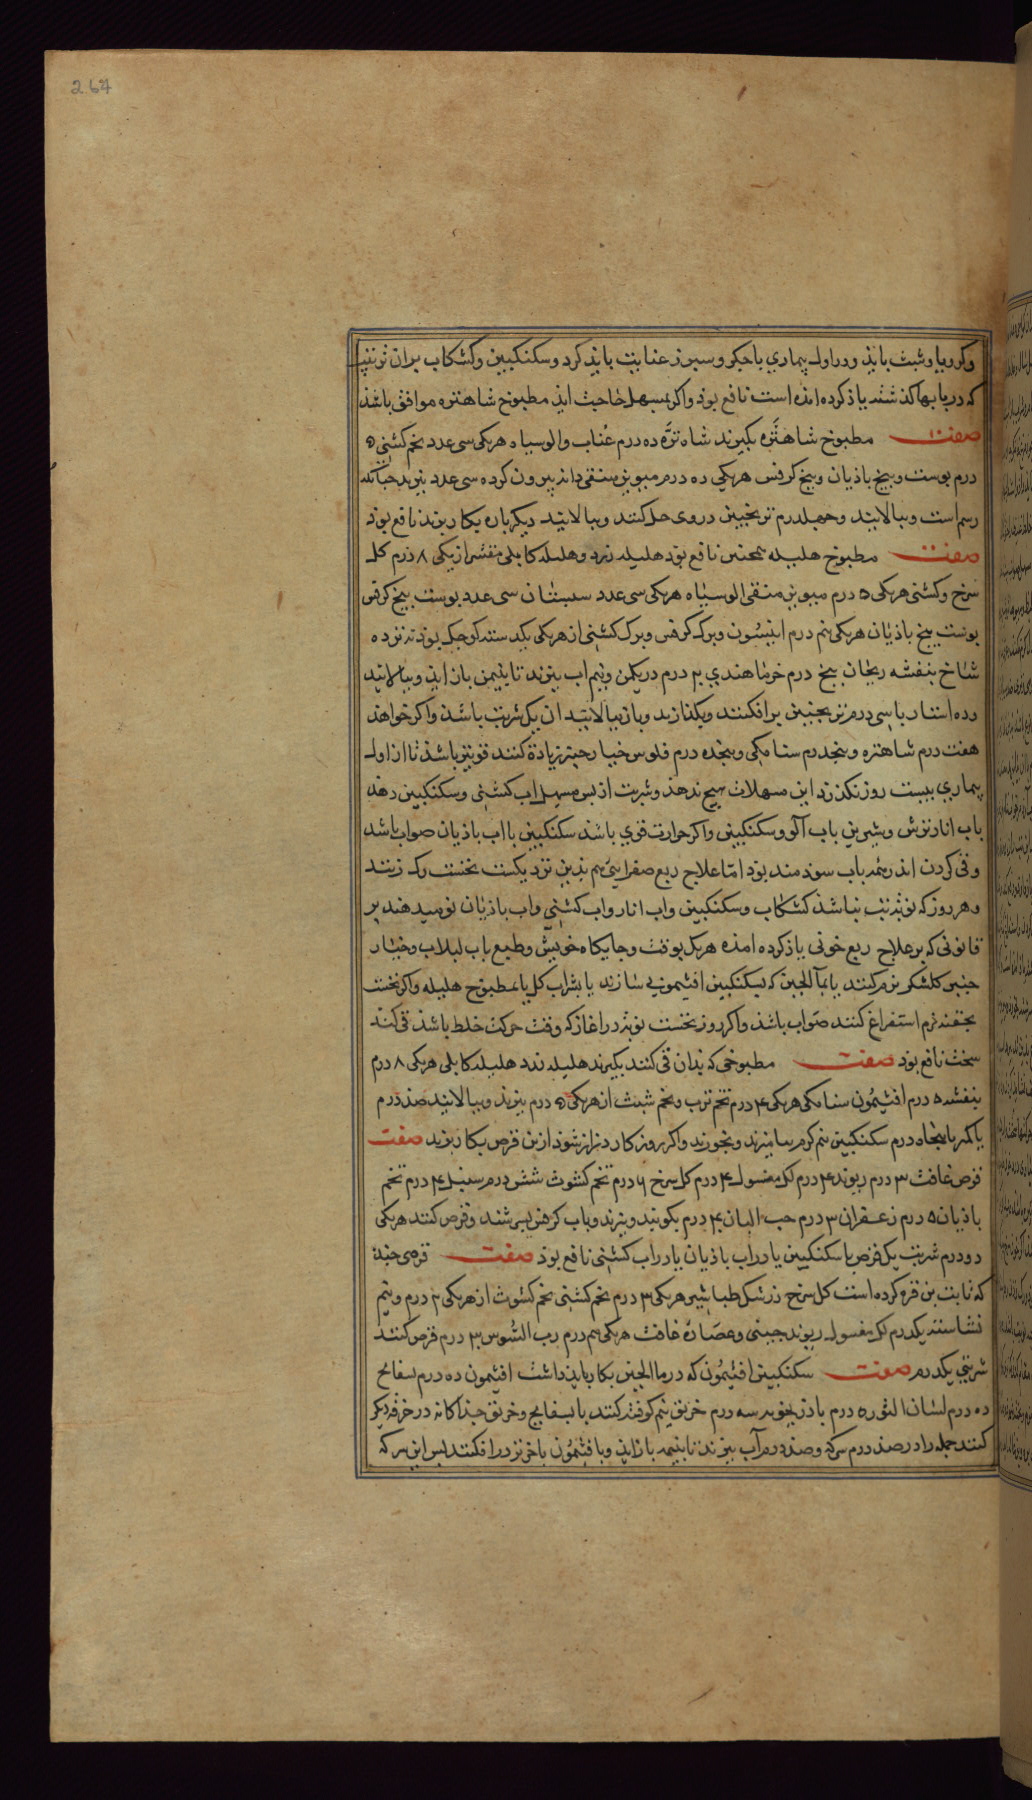 264
وکرویا وشبث باید ودراول بیماری با جکر وسپرز عنایت باید کرد وسکنکبین وکشکاب بران ترتیب
که دربابهاء کذشته یاذ کرده امذه است نافع بوذ واکر بمسهل حاجت ایذ مطبوخ شاهتره موافق باشذ
صفت مطبوخ شاهتره بکیرند شاه تره ده درم عناب والوسیاه هریکی سی عدد تخم کشنی ۵
درم بوست وبیخ باذیان وبیخ کرفس هریکی ده درم میویز منقی دانه بیرون کرده سی عدد ببزند جنانکه
رسم است وببالایند وجهلدرم ترنجبین دروی حل کنند وببالایند دیکرباره بکار برند نافع بوذ
صفت مطبوخ هلیله همجنین نافع بوذ هلیله زرد وهلیله کابلی مقشر ازیکی ۸ درم کل
سرخ وکشنی هریکی ۵ درم میویز منقی الوسیاه هریکی سی عدد سبستان سی عدد بوست بیخ کرفس
بوست بیخ باذیان هریکی بنم درم انیسون وبرک کرفس وبرک کشنی ازهریکی یکدسته کوجک بوذنه تر ده
شاخ بنفشه ریحان بنج درم خرماهندی ۲۰ درم دریکمن ونیم اب ببزند تا بنیمن باز ایذ وببالایند
وده استار با سی درم ترنجبین برافکنند وبکذارند وباز ببالایند ان یک شربت باشذ واکر خواهند
هفت درم شاهتره وبنجدرم سنا مکی وبنجده درم فلوس خیارجنبر زیادة کنند قویتر باشذ تا از اول
بیماری بیست روز نکذرذ این مسهلات هیج ندهند وشربت ازبس مسهل اب کشنی وسکنکبین دهند
باب انار ترش وشیرین باب آلو وسکنکبین واکر حرارت قوی باشذ سکنکبین با اب باذیان صواب باشد
وقی کردن اندر همه باب سوذمند بوذ امّا علاج ربع صفرایی هم بذین نزدیکست نخست رک زنند
وهر روز که نوبت تب نباشذ کشکاب وسکنکبین واب انار واب کشنی واب باذیان نومیدهند بر
قانونی که برعلاج ربع خونی یاذ کرده امذه هریک بوقت وجایکاه خویش وطبع باب لبلاب وخیار
جنبر کلشکر نرم کنند یا بماآلجبن که بسکنکبین افتیمونی سازند یا بشراب کل یا بمطبوخ هلیله واکر نخست
بحقنه نرم استفراغ کنند صواب باشذ واکر روز نخست نوبت درآغاز که وقت حرکت خلط باشذ قی کند
سخت نافع بوذ صفت مطبوخی که بذان قی کنند بکیرند هلیله زرد هلیله کابلی هریکی ۸ درم
بنفشه ۵ درم افتیمون سنا مکی هریکی ۴ درم تخم ترب وتخم شبث ازهریکی ۵ درم ببزند وببالایند صذ درم
یا کمتر با بنجاه درم سکنکبین نیم کرم بیامیزند وبخورند واکر روزکار دراز شوذ ازین قرص بکار برند صفت
قرص غافث ۳ درم ریوند ۴ درم لک مغسول ۴ درم کل سرخ ۶ درم تخم کشوث شش درم سنبل ۴ درم تخم
باذیان ۵ درم زعفران ۳ درم حب البان ۴ درم بکوبند وببزند وباب کرفس بسرشند وقرص کنند هریکی
دودرم شربت یک قرص با سکنکبین یا دراب باذیان یا دراب کشنی نافع بوذ صفت قرصی جند
که ثابت بن قره کرده است کل سرخ زرشک طباشیر هریکی ۳ درم تخم کشنی تخم کشوث ازهریکی ۲ درم ونیم
نشاسته یکدرم لک مغسول ریوند جینی وعصاره غافت هریکی نیم درم رب السوس ۳ درم قرص کنند
شربتی یکدرم صفت سکنکبین افتیمون که درماالجبن بکار باید داشت افتیمون ده درم بسفایج
ده درم لسان الثور ۵ درم باذرنجبویه سه درم خربق نیم کوفته کنند با بسفایج وخربق جذاکانه درخرقه دیکر
کنند جمله را درصذ درم سرکه وصذ درم آب ببزند تا بنیمه باز ایذ وبافتیمون باخرتر درافکنند بس این سرکه